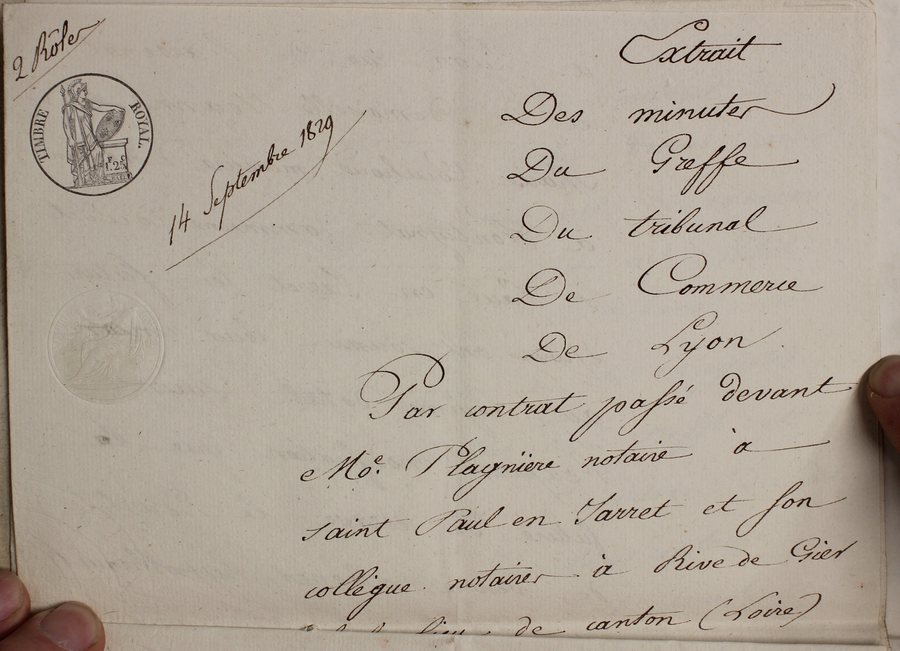 2 Rôles
TIMBRE ROYAL.
F. C.
1.25
14 Septembre 1829
Extrait
Des minutes
Du Greffe
Du tribunal
De Commerce
De Lyon
Par contrat passé devant
Me. Plagnière notaire à
saint Paul en Jarret et son
collègue notaires à Rive de Gier
de canton (Loire)